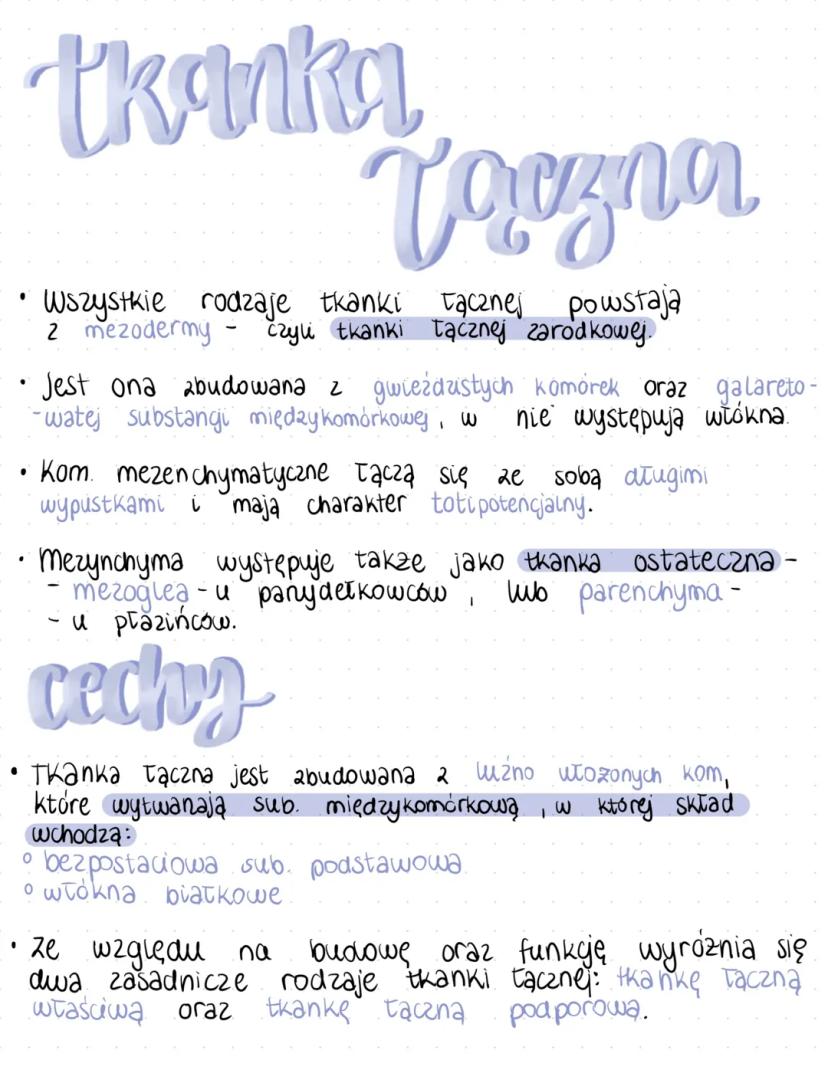 tkanka
łączna
• Wszystkie rodzaje tkanki łącznej powstają
z mezodermy - czyli tkanki łącznej zarodkowej.
• Jest ona zbudowana z gwieździstych komórek oraz galareto-
-watej substancji międzykomórkowej, w nie występują włókna.
• Kom. mezenchymatyczne łączą się ze sobą długimi
wypustkami i mają charakter totipotencjalny.
• Mezynchyma występuje także jako tkanka ostateczna -
- mezoglea - u parydełkowców, lub parenchyma -
- u płazińców.
cechy
• Tkanka łączna jest zbudowana z luźno ułożonych kom,
które wytwarzają sub. międzykomórkową, w której skład
wchodzą:
° bezpostaciowa sub. podstawowa
° włókna białkowe
• Ze względu na budowę oraz funkcję wyróżnia się
dwa zasadnicze rodzaje tkanki łącznej: tkankę łączną
właściwą oraz tkankę łączną podporową.